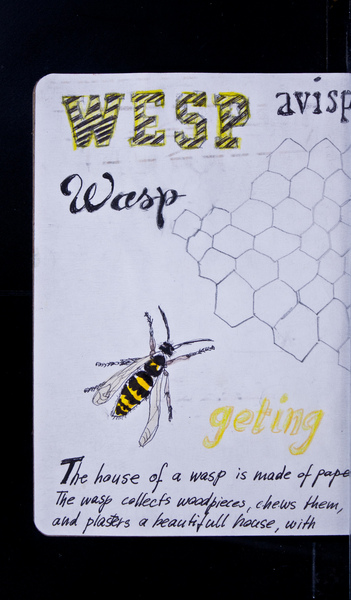 WESP
avisp
Wasp
geting
The house of a wasp is made of pape
The wasp collects woodpieces, chews them,
and plasters a beautifull house, with